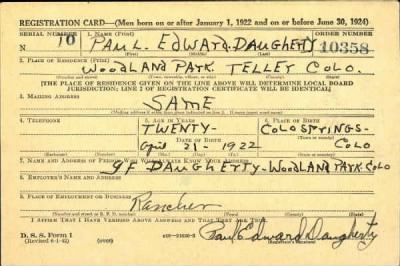 REGISTRATION CARD—(Men born on or after January 1, 1922 and on or before June 30, 1924)
SERIAL NUMBER 1. Name (Print) ORDER NUMBER
10 PAUL EDWARD DAUGHETY 10358
2. PLACE OF RESIDENCE (Print)
WOODLAND PARK TELLEY COLO.
[THE PLACE OF RESIDENCE GIVEN ON THE LINE ABOVE WILL DETERMINE LOCAL BOARD
JURISDICTION; LINE 2 OF REGISTRATION CERTIFICATE WILL BE IDENTICAL]
3. MAILING ADDRESS
SAME
4. TELEPHONE 5. AGE IN YEARS 6. PLACE OF BIRTH
TWENTY- COLO SPRINGS-
DATE OF BIRTH
April 21- 1922 COLO
7. NAME AND ADDRESS OF PERSON WHO WILL ALWAYS KNOW YOUR ADDRESS
DAUGHETTY-WOODLAND PARK COLO
8. EMPLOYER'S NAME AND ADDRESS
9. PLACE OF EMPLOYMENT OR BUSINESS
Rancher
I AFFIRM THAT I HAVE VERIFIED ABOVE ANSWERS AND THAT THEY ARE TRUE.
D. S. S. Form 1
(Revised 6-1-42)
Paul Edward Daugherty